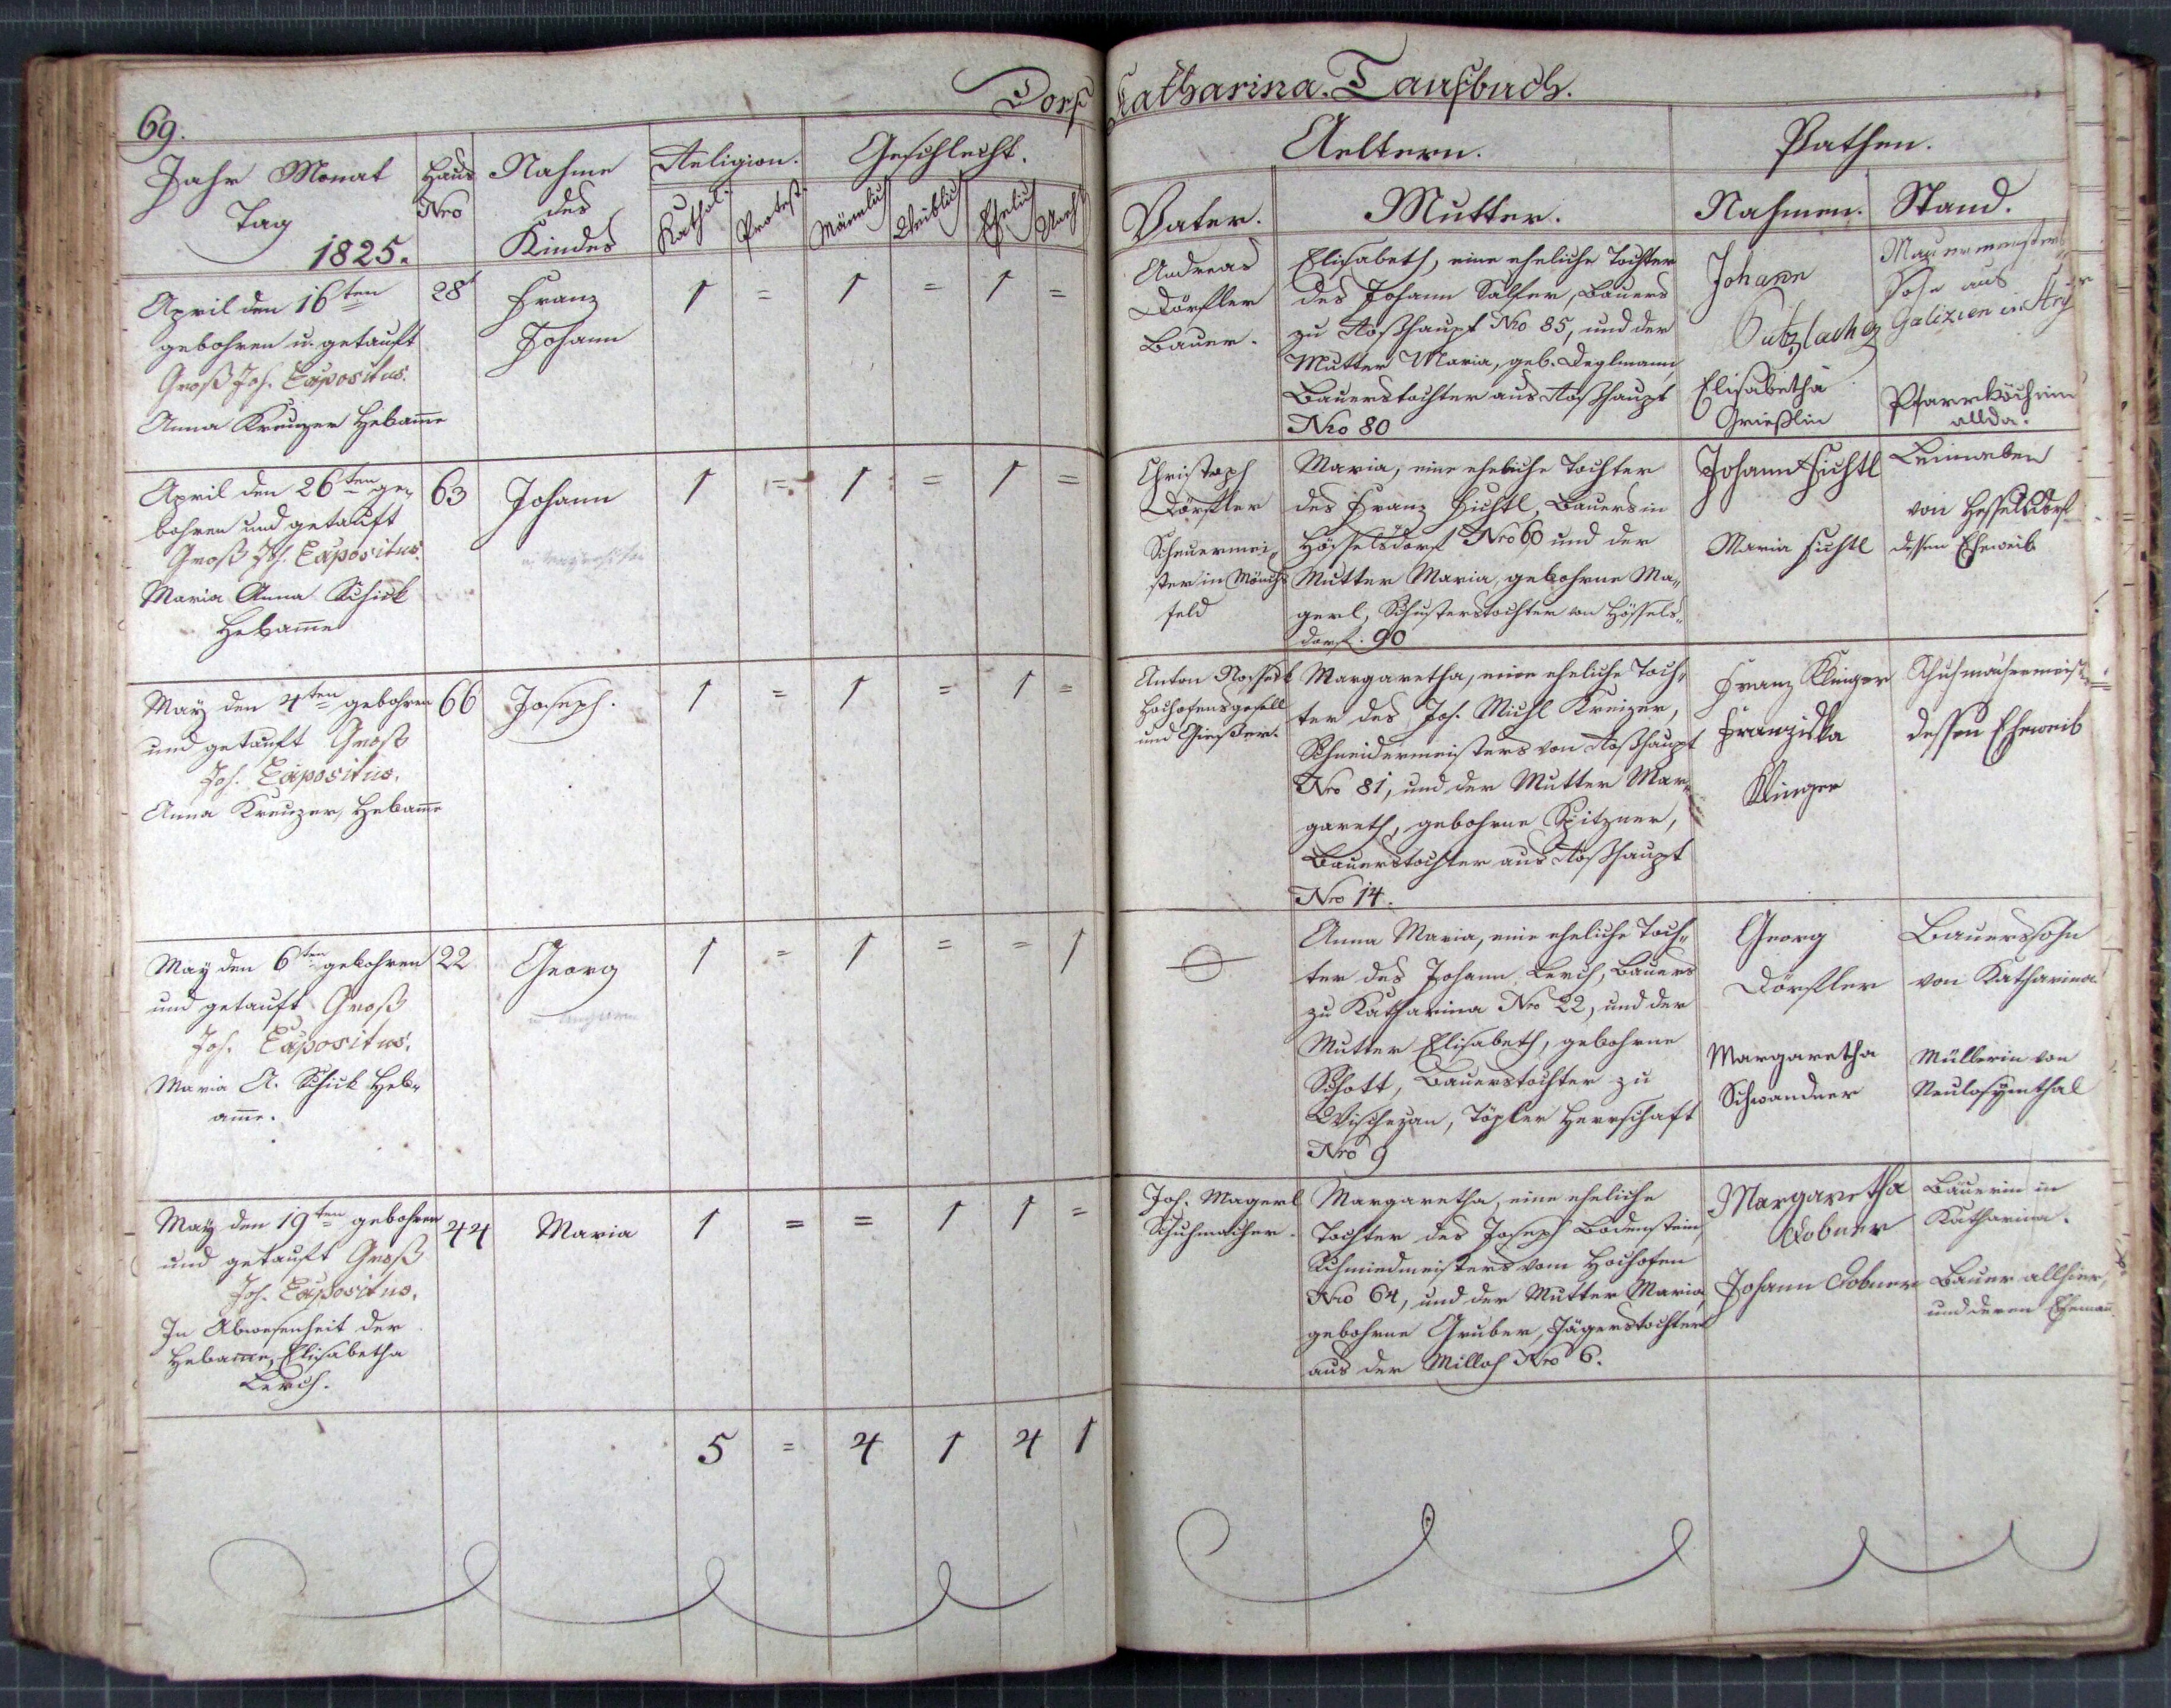 69.
Dorf Katharina. Taufbuch.
Jahr Monat
Tag
1825.
Haus
Nro
Nahme
des
Kindes
Religion.
Kathol:
Protest:
Geschlecht.
Männlich
Weiblich
Ehelich
Unehl
Aeltern.
Vater.
Mutter.
Pathen.
Nahmen.
Stand.
April den 16ten
gebohren u. getauft
Groß Joh. Expositus.
Anna Kreuzer Hebamme
28
Franz
Johann
1 = 1 = 1 =
Andreas
Dörfler
Bauer.
Elisabeth, eine eheliche Tochter
des Johann Salfer, Bauers
zu Roßhaupt Nro 85, und der
Mutter Maria, geb. Deglmann
Bauerstochter aus Roßhaupt
Nro 80
Johann
Elisabetha
Grießlin
Maurermeisters
Sohn aus
Galizien in
Pfarrköchinn
allda.
April den 26ten ge,,
bohren und getauft
Groß Joh. Expositus.
Maria Anna Schick
Hebamme
63
Johann
1 = 1 = 1 =
Christoph
Dörfler
Scheuermei,,
ster in Mönchs
feld
Maria, eine eheliche Tochter
des Franz Fichtl, Bauers in
Hösselsdorf Nro 60 und der
Mutter Maria, gebohrne Ma,,
gerl, Schusterstochter von Hössels,,
dorf. 90
Johann Fichtl
Maria Fichtl
Leinweber
von Hesselsdorf
dessen Eheweib
May den 4ten gebohren
und getauft Groß
Joh. Expositus.
Anna Kreuzer, Hebamme
66
Joseph.
1 = 1 = 1 =
Anton
Hochofensgesell
und Gießer.
Margaretha, eine eheliche Toch,,
ter des Joh. Michl Kreizer,
Schneidermeisters von Roßhaupt
Nro 81, und der Mutter Mar,,
gareth, gebohrne Spitzner,
Bauerstochter aus Roßhaupt
Nro 14.
Franz Klinger
Franziska
Klinger
Schuhmachermeist
dessen Eheweib
May den 6ten gebohren
und getauft Groß
Joh. Expositus.
Maria A. Schick Heb,,
amme.
22
Georg
1 = 1 = = 1
Anna Maria, eine eheliche Toch,,
ter des Johann Lerch, Bauers
zu Katharina Nro 22, und der
Mutter Elisabeth, gebohrne
Schott, Bauerstochter zu
Wischezan, Töpler Herrschaft
Nro 9
Georg
Dörfler
Margaretha
Schwandner
Bauerssohn
von Katharina.
Müllerin von
Neulosymthal
May den 19ten gebohren
und getauft Groß
Joh. Expositus.
In Abwesenheit der
Hebamme, Elisabetha
Lerch.
44
Maria
1 = = 1 1 =
Joh. Magerl
Schuhmacher.
Margaretha, eine eheliche
Tochter des Joseph Bodenstein,
Schmiedmeisters vom Hochofen
Nro 64, und der Mutter Maria
gebohrne Gruber, Jägerstochter
aus der Milloh Nro 6.
Margaretha
Dobner
Johann Dobner
Bäuerin in
Katharina.
Bauer allhier,
und deren Ehemann
5 = 4 1 4 1